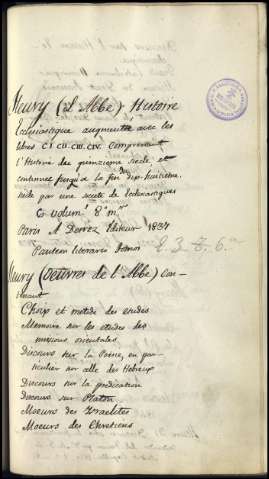 Fleury (L'Abbé) Histoire
Ecclesiastique augmentée avec les
libres CI. CII. CIII. CIV. comprenant
l'Histoire du quinzieme siecle, et
continuée jusqu'a la fin du dix-huitieme
siecle par une societé de ecclesiastiques
6 volum. 8º m.
Paris A Derrez Editeur 1837
Panteon literaire
E. 3. 6.
Fleury (Oeuvres de l'Abbé) con-
tenant
Choix et metode des etudes
Memoire sur les etudes des
missions orientales
Discours sur la Poesie, en par-
ticulier sur celle des Hebreux
Discours sur la predication
Discours sur Platon
Moeurs des Israelites
Moeurs des Chretiens